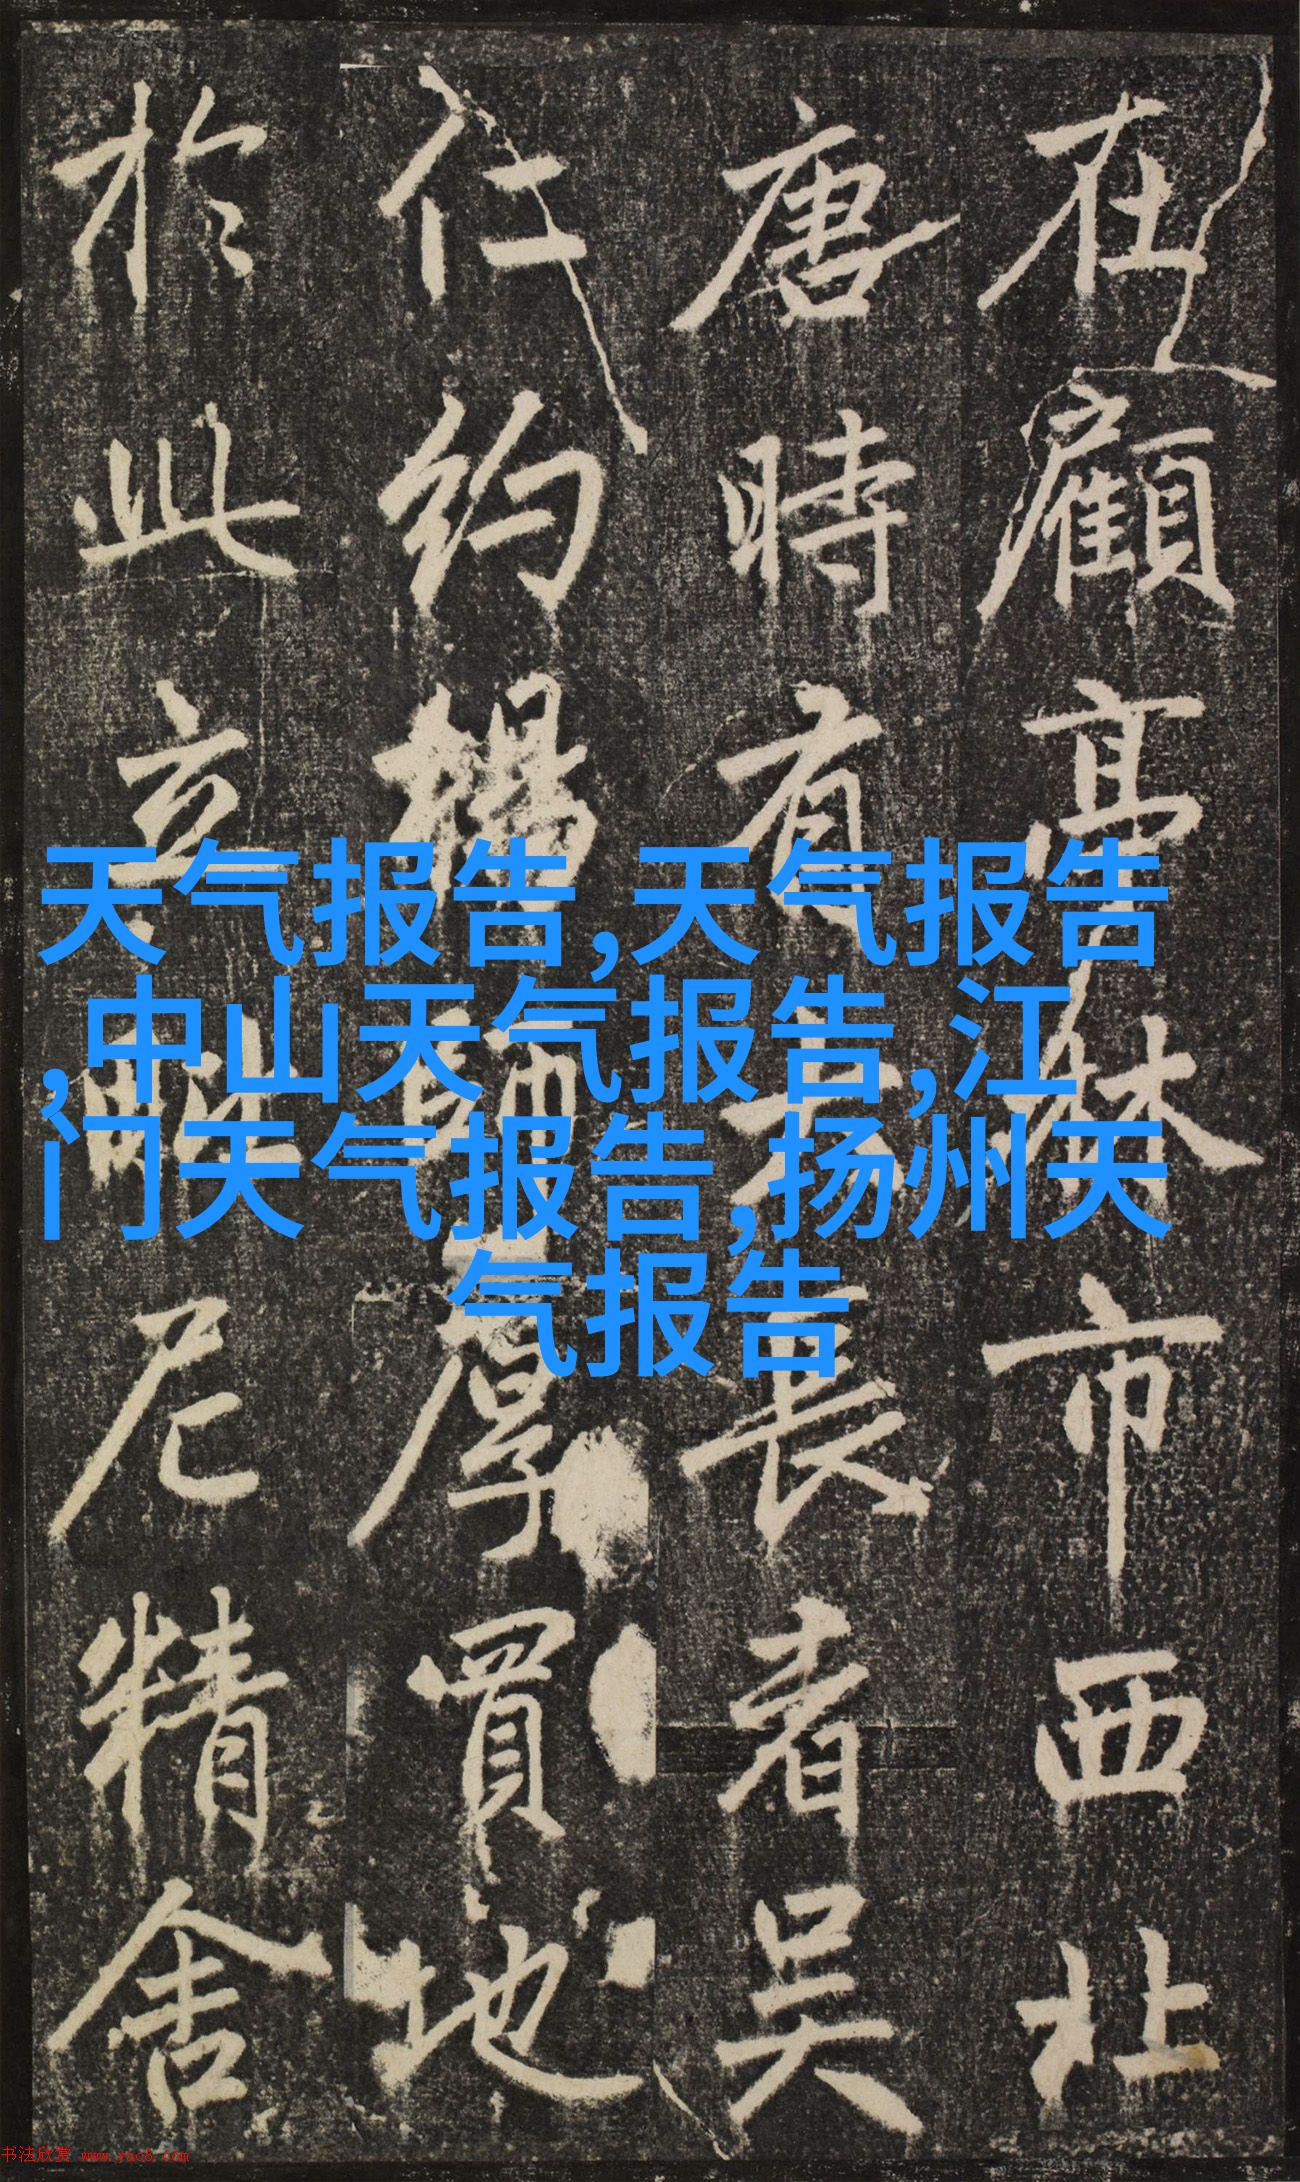 在顧亭林市西北
唐時有大長者吴
仁約
厚買地
於此立
尼精舍
天气报告,天气报告
,中山天气报告,江
门天气报告,扬州天
气报告
书法欣赏 www.yac8.com